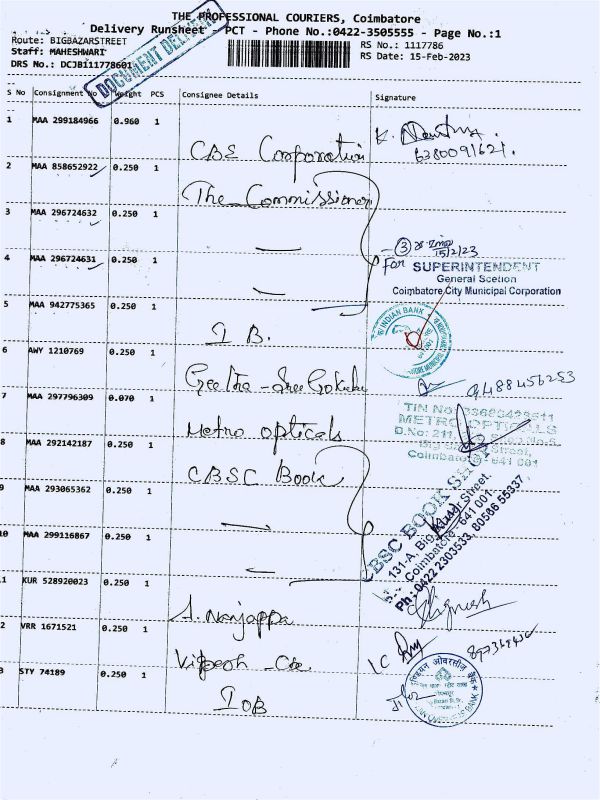 THE PROFESSIONAL COURIERS, Coimbatore
Delivery Runsheet - PCT - Phone No.:0422-3505555 - Page No.:1
Route: BIGBAZARSTREET
RS No.: 1117786
Staff: MAHESHWARI
RS Date: 15-Feb-2023
DRS No.: DCJBI11778601
DOCUMENT DELIVERY
S No Consignment No Weight PCS Consignee Details Signature
1 MAA 299184966 0.960 1 CBE Corporation
6380091621.
2 MAA 858652922 0.250 1 The Commissioner
3 MAA 296724632 0.250 1
4 MAA 296724631 0.250 1
3
15/2/23
for SUPERINTENDENT
General Scetion
Coimbatore City Municipal Corporation
5 MAA 942775365 0.250 1 I B.
INDIAN BANK
6 AWY 1210769 0.250 1 Geetha - Sree Gokulu
9488456253
7 MAA 297796309 0.070 1 Metro opticals
TIN No
METRO OPTICALS
D.No: 211,
Street,
Coimbatore - 641 001
8 MAA 292142187 0.250 1 CBSC Book
9 MAA 293065362 0.250 1
10 MAA 299116867 0.250 1
BSC BOOK SHOP
131-A, Big Bazaar Street,
Coimbatore - 641 001.
Ph: 0422 2303533, 80586 55337
1 KUR 528920023 0.250 1 A. Nanjappa
Vignesh
2 VRR 1671521 0.250 1
3 STY 74189 0.250 1 IOB
इण्डियन ओवरसीज़ बैंक
INDIAN OVERSEAS BANK